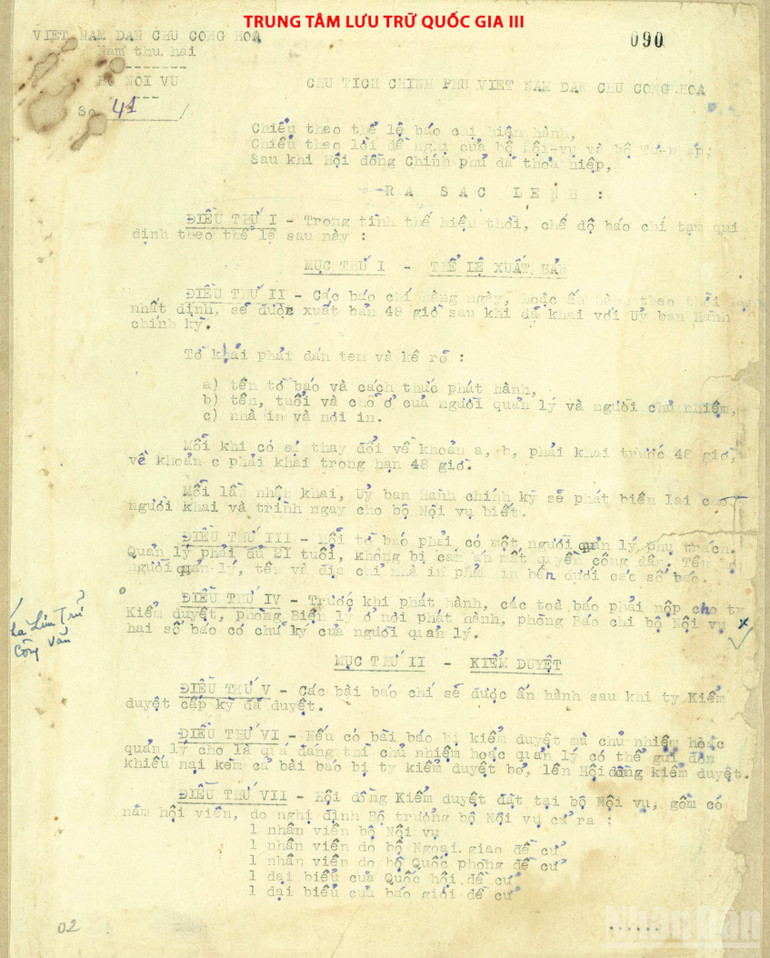 TRUNG TÂM LƯU TRỮ QUỐC GIA III
090
VIỆT NAM DÂN CHỦ CỘNG HÒA
Năm thứ hai
BỘ NỘI VỤ
Số 41
CHỦ TỊCH CHÍNH PHỦ VIỆT NAM DÂN CHỦ CỘNG HÒA
Chiểu theo thể lệ báo chí hiện hành,
Chiểu theo lời đề nghị của bộ Nội-vụ và bộ Tư-pháp;
Sau khi Hội đồng Chính phủ đã thoả hiệp,
RA SẮC LỆNH :
ĐIỀU THỨ I - Trong tình thế hiện thời, chế độ báo chí tạm qui
định theo thể lệ sau này :
MỤC THỨ I - THỂ LỆ XUẤT BẢN
ĐIỀU THỨ II - Các báo chí hàng ngày, hoặc ấn hành theo thời
nhất định, sẽ được xuất bản 48 giờ sau khi đã khai với Uỷ ban Hành
chính kỳ.
Tờ khai phải dán tem và kê rõ :
a) tên tờ báo và cách thức phát hành,
b) tên, tuổi và chỗ ở của người quản lý và người chủ nhiệm,
c) nhà in và nơi in.
Mỗi khi có sự thay đổi về khoản a, b, phải khai trước 48 giờ,
về khoản c phải khai trong hạn 48 giờ.
Mỗi lần nhận khai, Uỷ ban Hành chính kỳ sẽ phát biên lai cho
người khai và trình ngay cho bộ Nội vụ biết.
ĐIỀU THỨ III - Mỗi tờ báo phải có một người quản lý phụ trách.
Quản lý phải đủ 21 tuổi, không bị can án mất quyền công dân. Tên
người quản lý, tên và địa chỉ nhà in phải in bên dưới các số báo.
ĐIỀU THỨ IV - Trước khi phát hành, các toà báo phải nộp cho ty
Kiểm duyệt, phòng Biện lý ở nơi phát hành, phòng Báo chí bộ Nội vụ x
hai số báo có chữ ký của người quản lý.
Lưu Trữ
Công văn
MỤC THỨ II - KIỂM DUYỆT
ĐIỀU THỨ V - Các bài báo chí sẽ được ấn hành sau khi ty Kiểm
duyệt cấp kỳ đã duyệt.
ĐIỀU THỨ VI - Nếu có bài báo bị kiểm duyệt mà chủ nhiệm hoặc
quản lý cho là quá đáng thì chủ nhiệm hoặc quản lý có thể gửi đơn
khiếu nại kèm cả bài báo bị ty kiểm duyệt bỏ, lên Hội đồng kiểm duyệt.
ĐIỀU THỨ VII - Hội đồng Kiểm duyệt đặt tại bộ Nội vụ, gồm có
năm hội viên, do nghị định Bộ trưởng bộ Nội vụ cử ra :
1 nhân viên bộ Nội vụ
1 nhân viên do bộ Ngoại giao đề cử
1 nhân viên do bộ Quốc phòng đề cử
1 đại biểu của Quốc hội đề cử
1 đại biểu của báo giới đề cử
02
......
NhânDân